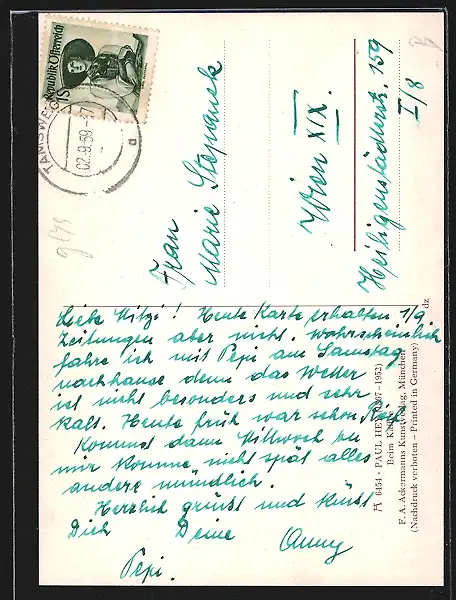 Republik Österreich
TAMSWEG
02.9.59-17
a
Frau
Marie Stepanek
Wien XIX.
Heiligenstädterstr. 159
I/8
Liebe Mitzi! Heute Karte erhalten 1/9
Zeitungen aber nicht. Wahrscheinlich
fahre ich mit Pepi am Samstag
nachhause denn das Wetter
ist nicht besonders und sehr
kalt. Heute früh war schon Reif
Kommst dann Mittwoch zu
mir komme nicht spät alles
andere mündlich.
Herzlich grüßt und küßt
Dich Deine Anny
Pepi.
6454 - PAUL HEY (1867–1952)
Beim
F. A. Ackermanns Kunstverlag, München
(Nachdruck verboten – Printed in Germany)
dz